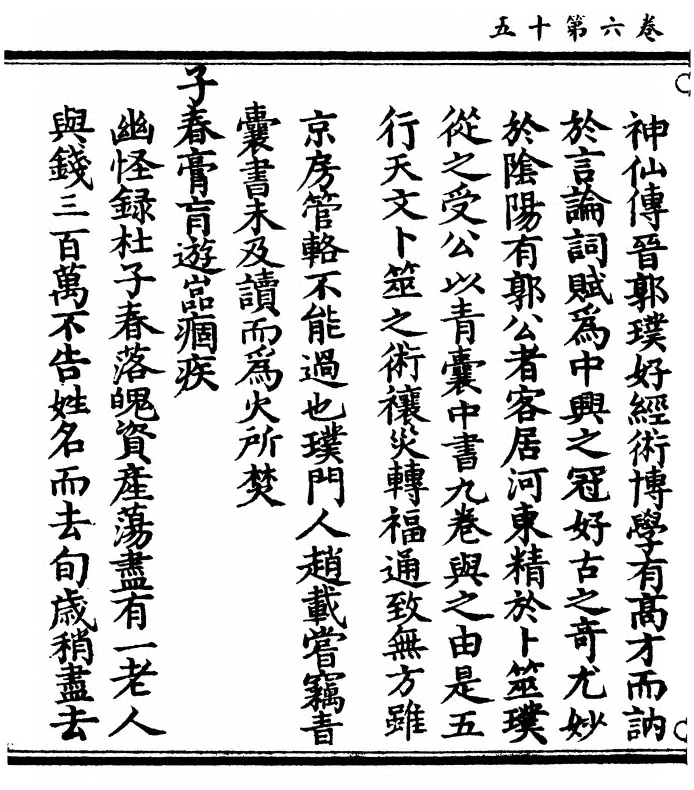 卷六第十五
神仙傳晉郭璞好經術博學有高才而訥
於言論詞賦爲中興之冠好古之奇尤妙
於陰陽有郭公者客居河東精於卜筮璞
從之受公以青囊中書九卷與之由是五
行天文卜筮之術禳災轉福通致無方雖
京房管輅不能過也璞門人趙載嘗竊青
囊書未及讀而爲火所焚
子春膏肓遊嵓痼疾
幽怪録杜子春落魄資産蕩盡有一老人
與錢三百萬不告姓名而去旬歲稍盡去